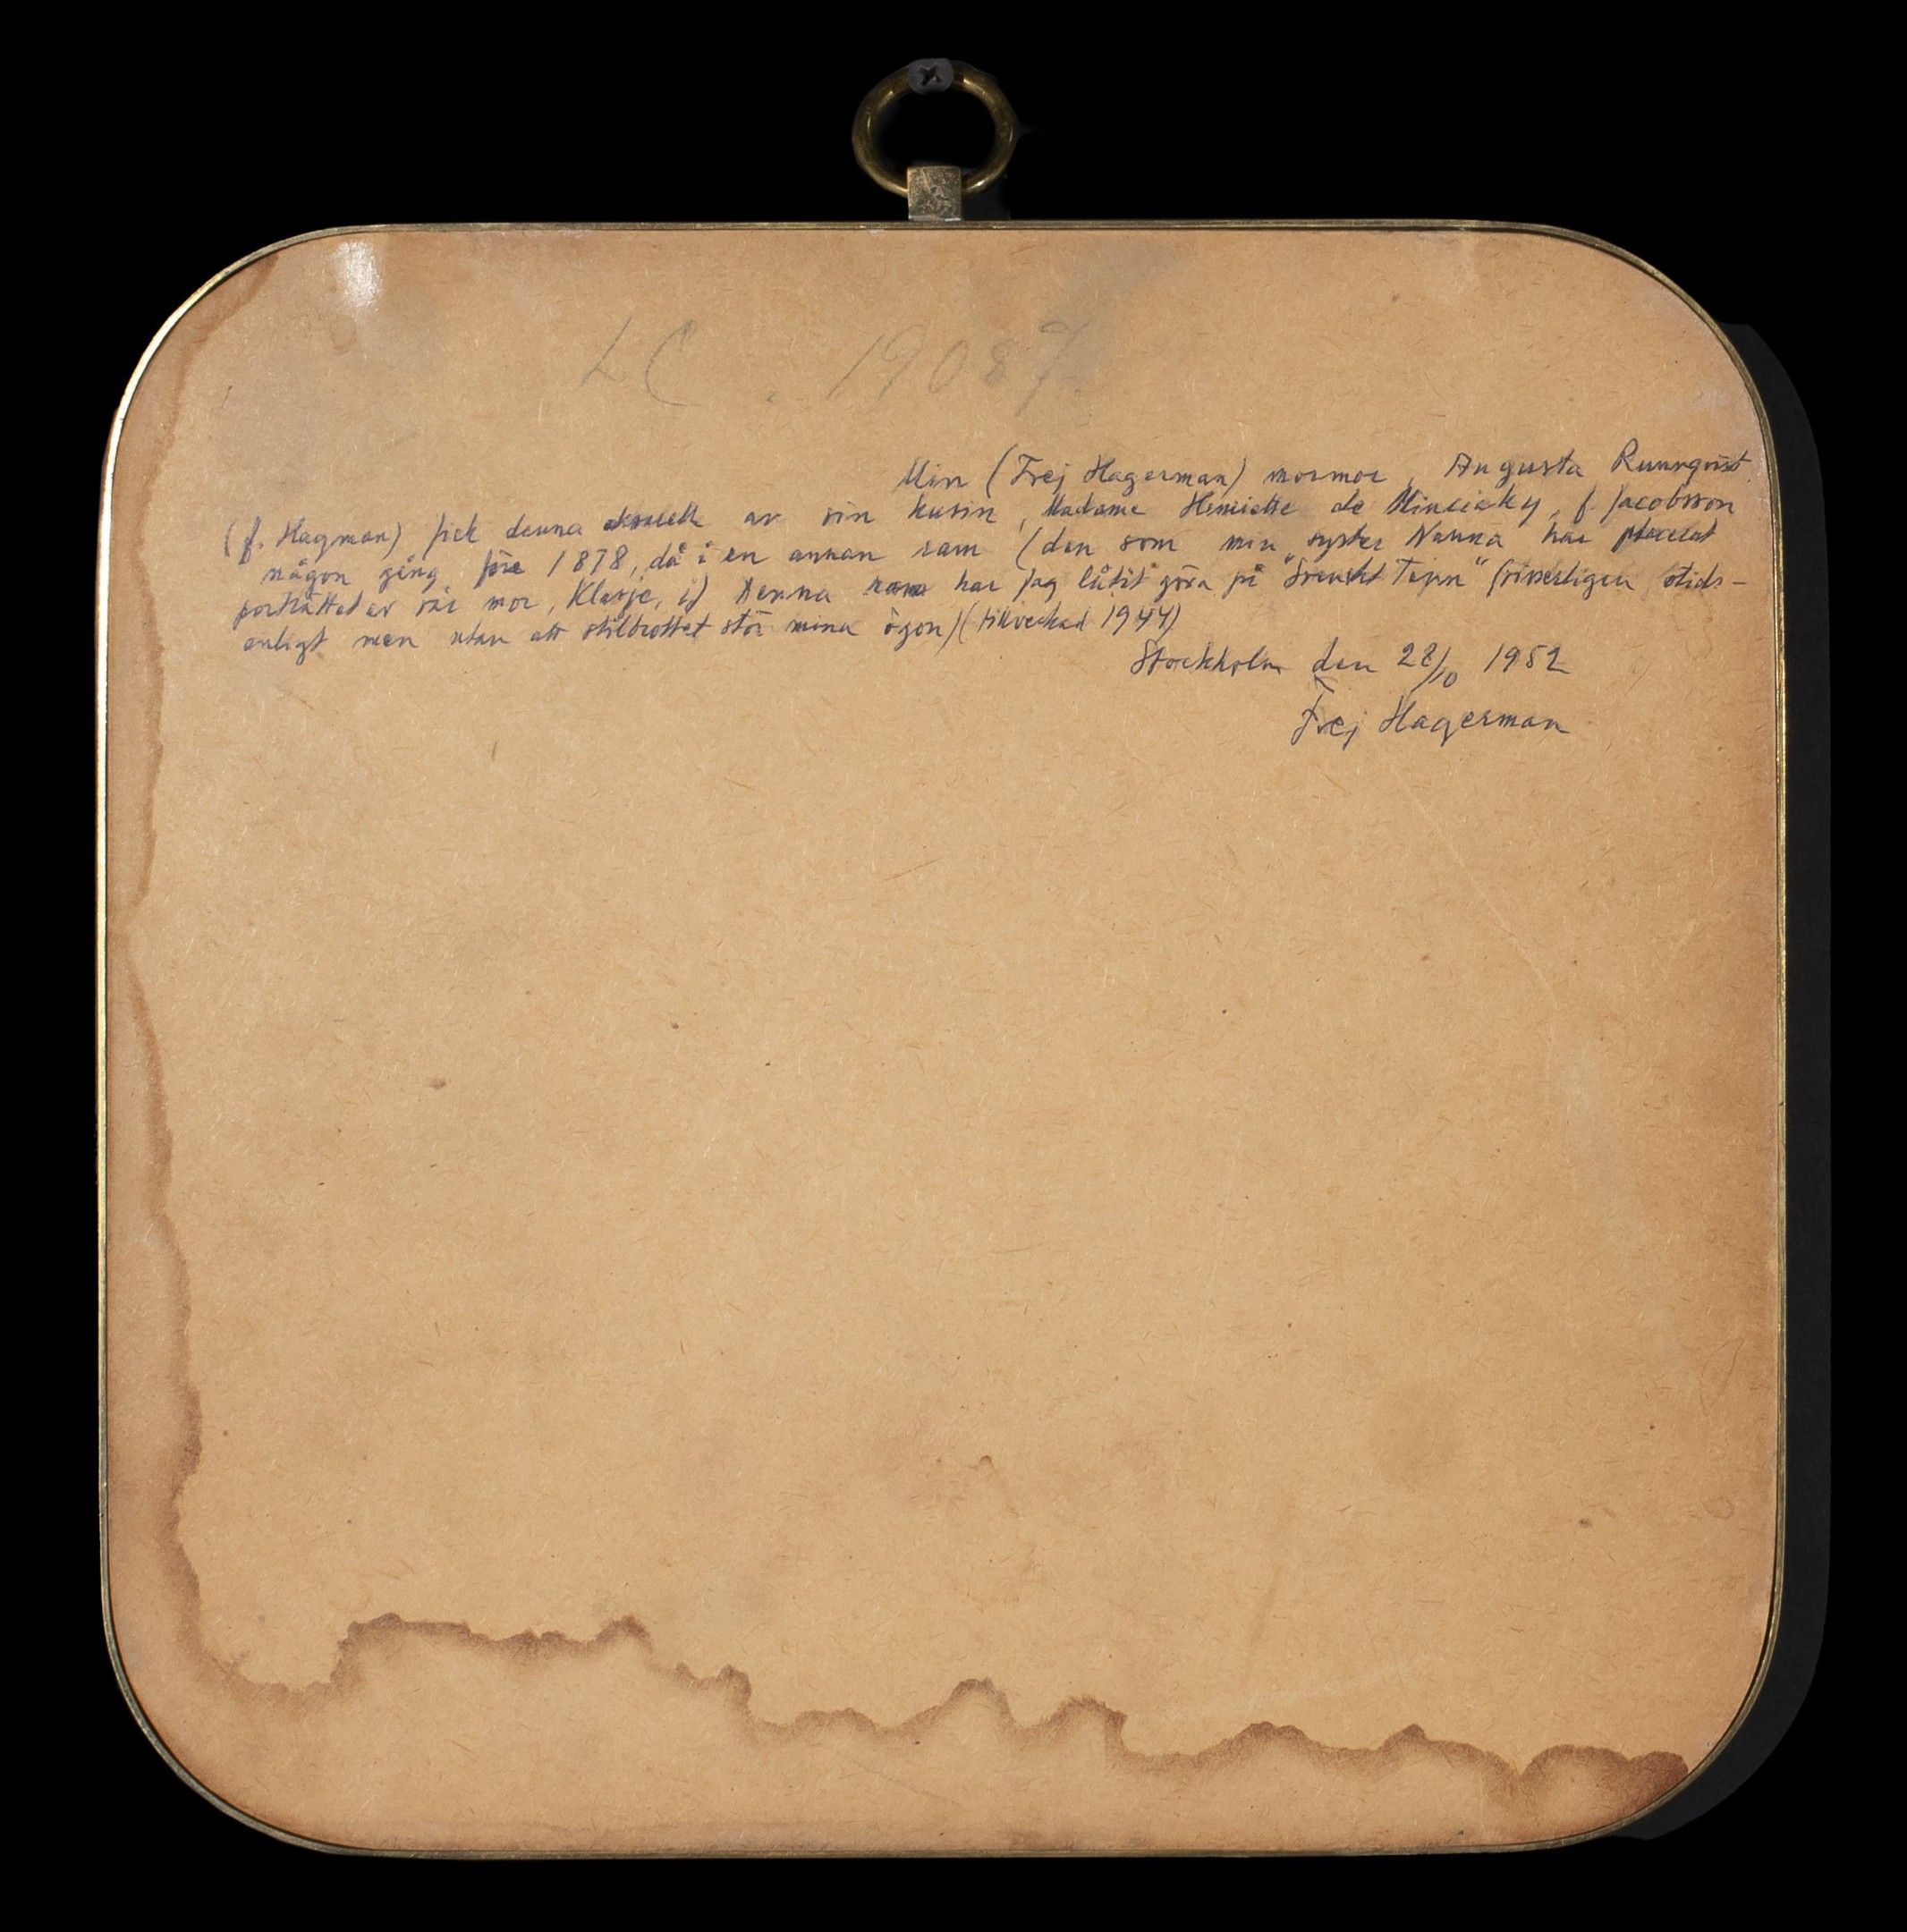 LC. 19087.
Min (Frej Hagerman) mormor, Augusta Runnqvist
(f. Hagman) fick denna av sin kusin, Madame Henriette de Minciaky, f. Jacobsson
någon gång före 1878, då i en annan ram (den som min syster Nanna har placerat
porträttet av vår mor, Klasje, i) Denna ram har jag låtit göra på "Svenskt Tenn" (visserligen otids-
enligt men utan att stilbrottet stör mina ögon) (tillverkad 1944)
Stockholm den 28/10 1952
Frej Hagerman